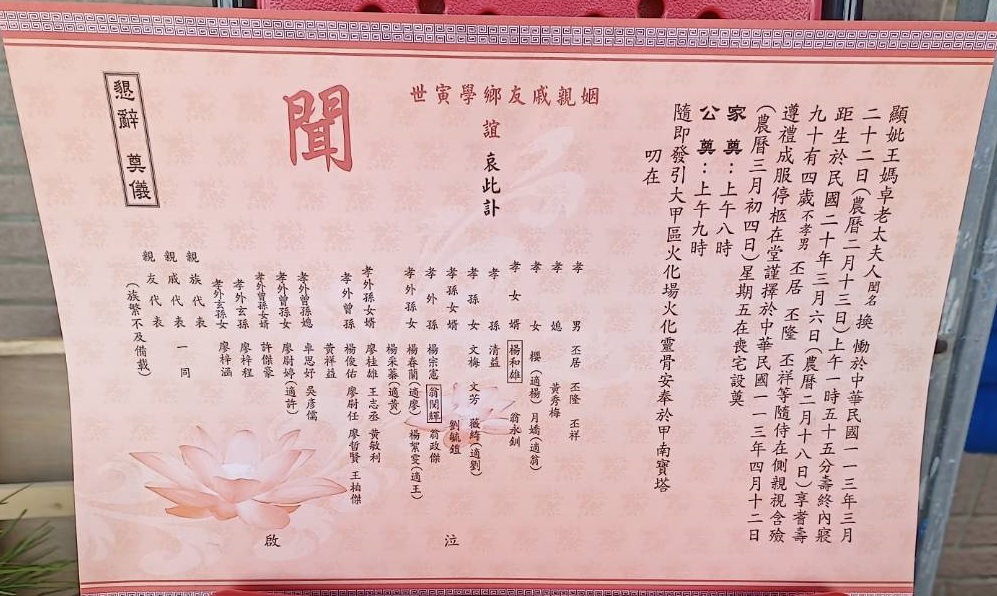 顯妣王媽卓老太夫人閨名 換 慟於中華民國一一三年三月
二十二日(農曆二月十三日)上午一時五十五分壽終內寢
距生於民國二十年三月六日(農曆二月十八日)享耆壽
九十有四歲不孝男 丕居 丕隆 丕祥等隨侍在側親視含殮
遵禮成服停柩在堂謹擇於中華民國一一三年四月十二日
(農曆三月初四日)星期五在喪宅設奠
家 奠：上午八時
公 奠：上午九時
隨即發引大甲區火化場火化靈骨安奉於甲南寶塔
叨在
姻親戚友鄉學寅世
誼 哀此訃
聞
孝男 丕居 丕隆 丕祥
孝媳 黃秀梅
孝女 櫻(適楊) 月嬌(適翁)
孝女婿 楊和雄 翁永釧
孝孫 清益
孝孫女 文梅 文芳 薇綺(適劉)
孝孫女婿 劉毓鎧
孝外孫 楊宗憲 翁閔輝 翁政傑
孝外孫女 楊春蘭(適廖) 楊絮雯(適王)
楊采蓁(適黃)
孝外孫女婿 廖桂雄 王志丞 黃敏利
孝外曾孫 楊俊佑 廖尉任 廖哲賢 王柏傑
黃祥益
孝外曾孫媳 卓思妤 吳彥儒
孝外曾孫女 廖尉婷(適許)
孝外曾孫女婿 許傑豪
孝外玄孫 廖梓程
孝外玄孫女 廖梓涵
親族代表 一同
親戚代表
親友代表
(族繁不及備載)
泣
啟
懇辭 奠儀